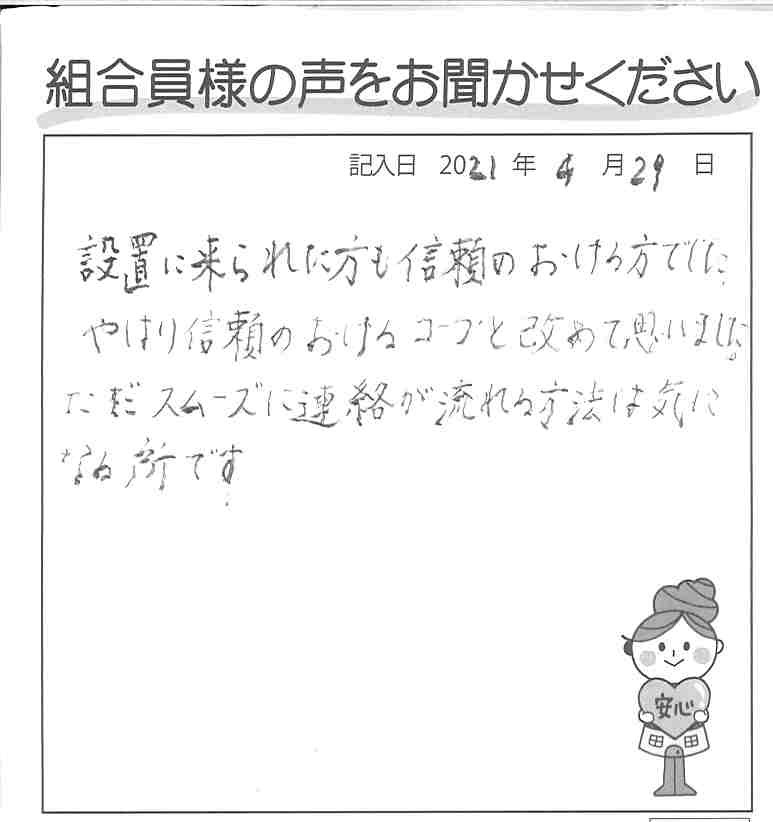 組合員様の声をお聞かせください
記入日 2021 年 4 月 29 日
設置に来られた方も信頼のおける方でした
やはり信頼のおけるコープと改めて思いました。
ただスムーズに連絡が流れる方法は気に
なる所です
安心